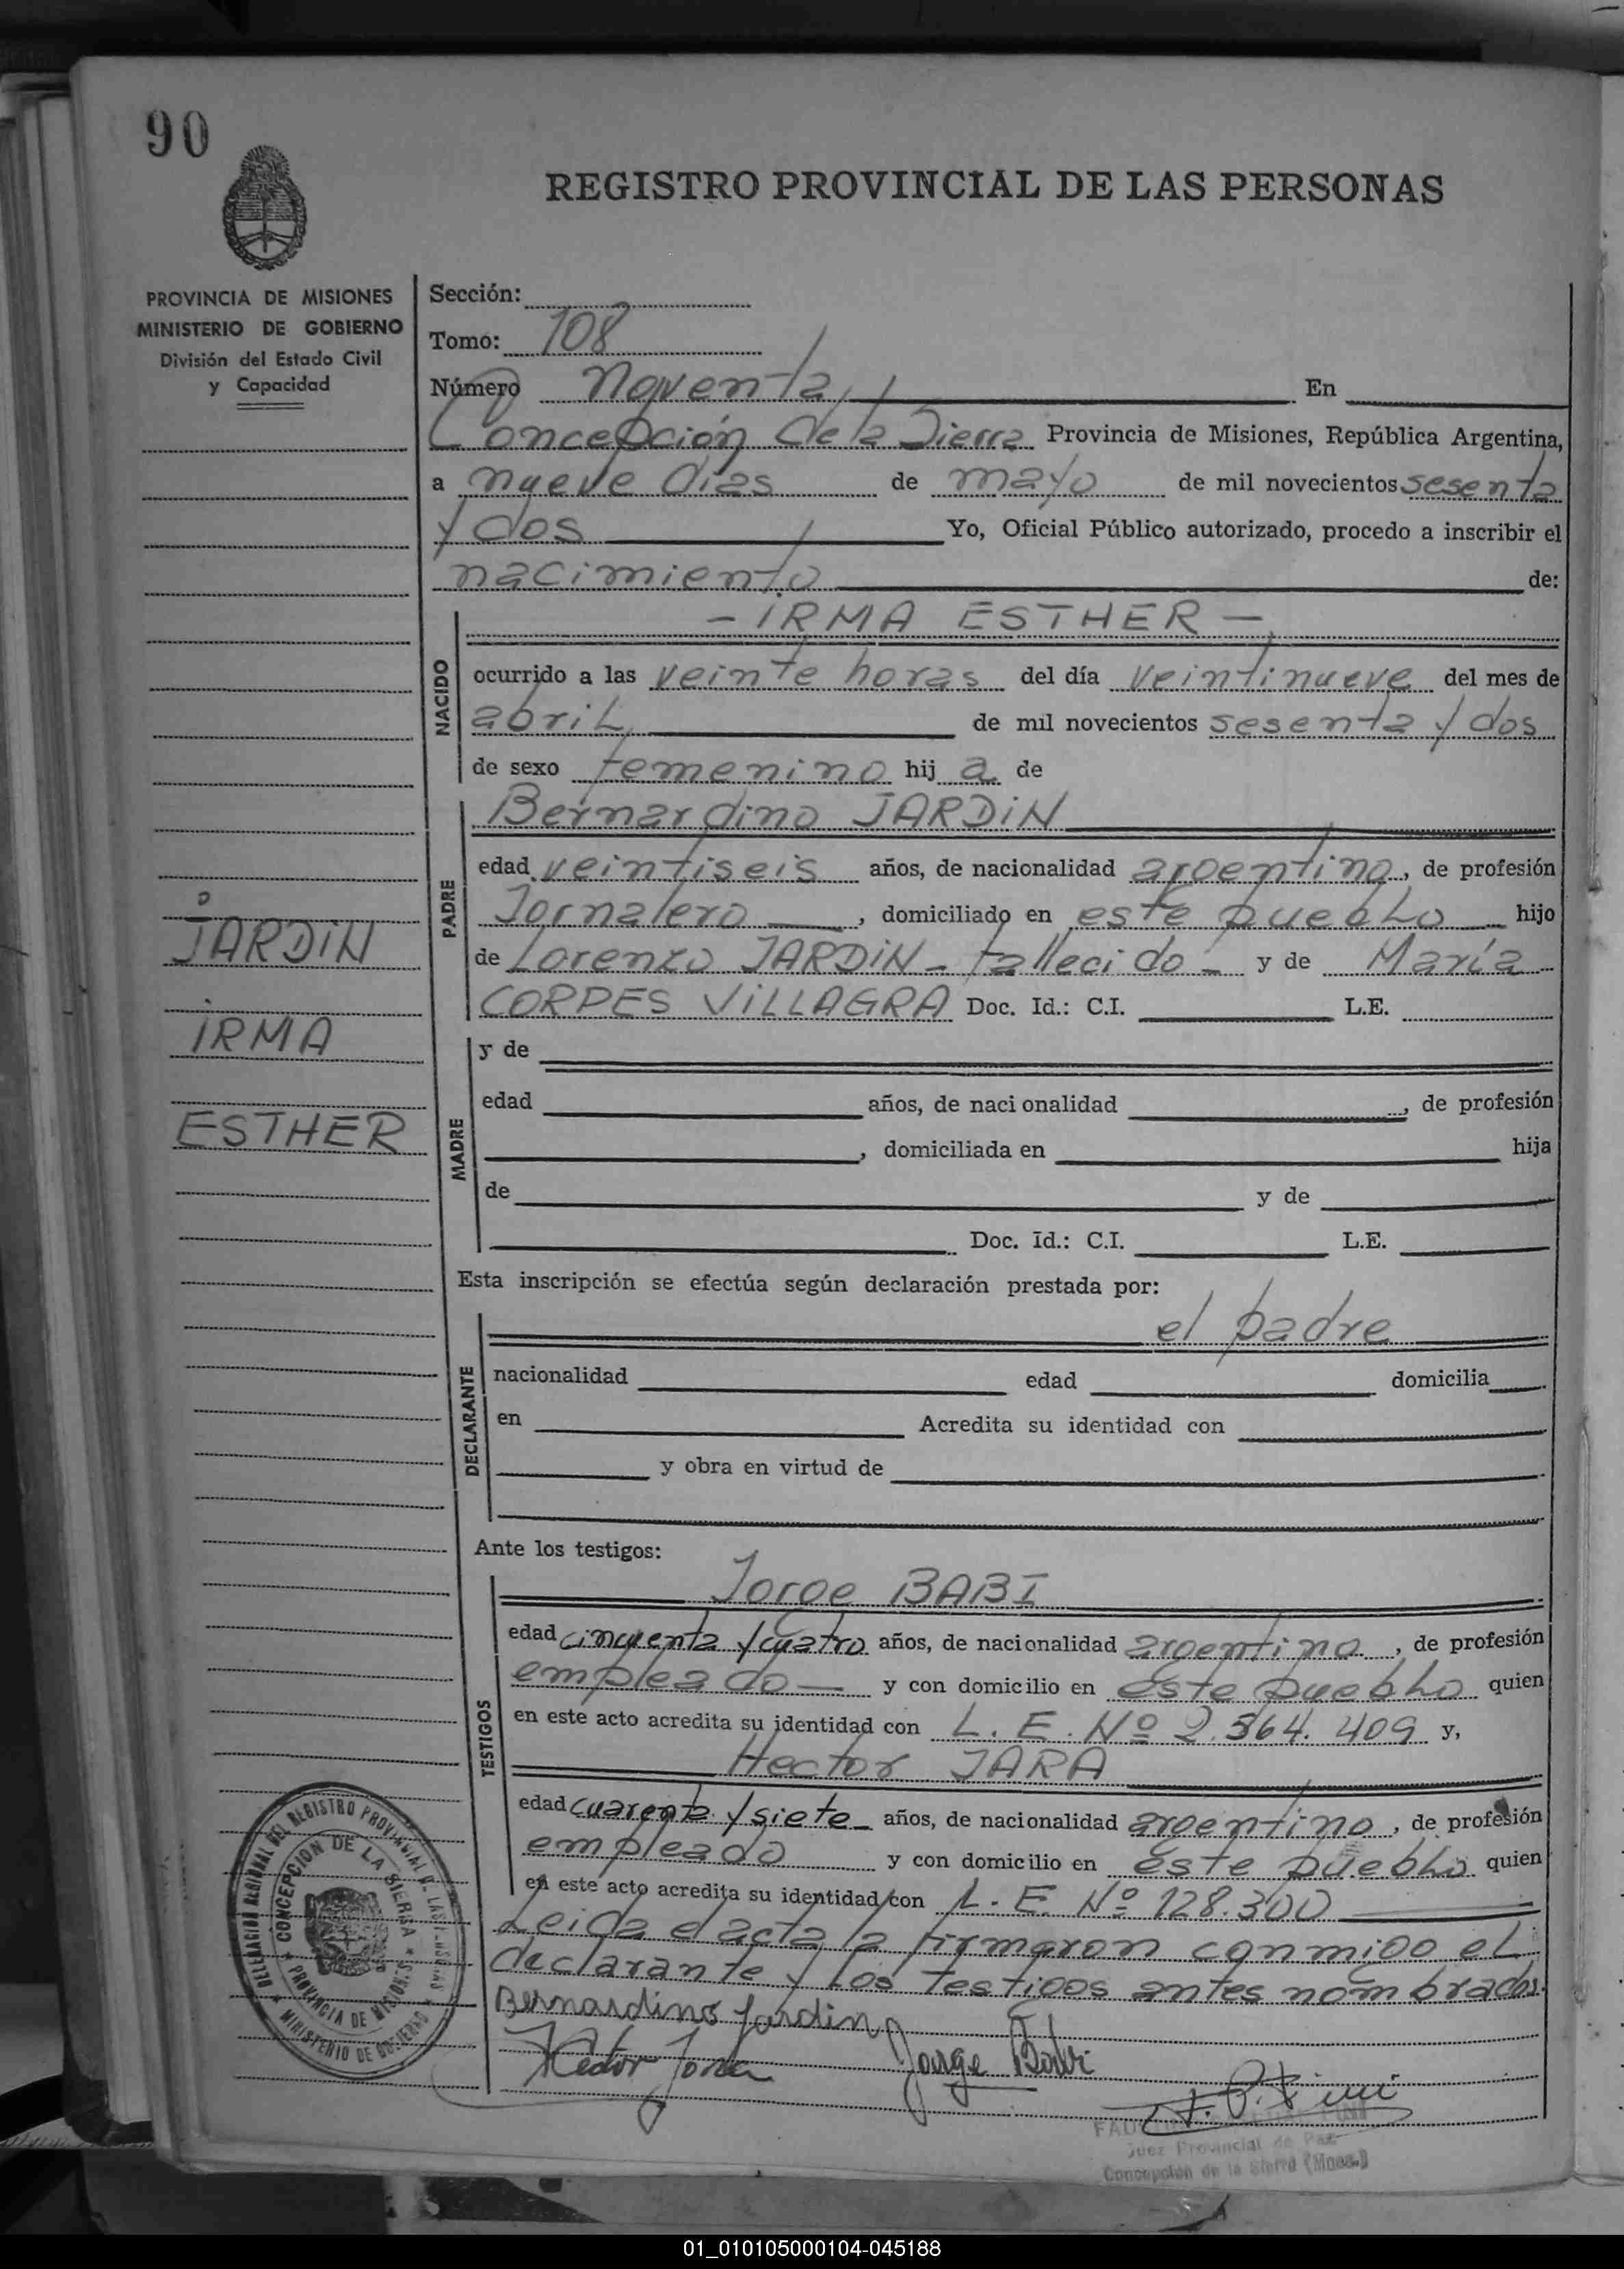 90
REGISTRO PROVINCIAL DE LAS PERSONAS
PROVINCIA DE MISIONES
MINISTERIO DE GOBIERNO
División del Estado Civil
y Capacidad
JARDIN
IRMA
ESTHER
Sección:
Tomo: 108
Número noventa En
Concepción de la Sierra Provincia de Misiones, República Argentina,
a nueve días de mayo de mil novecientos sesenta
y dos Yo, Oficial Público autorizado, procedo a inscribir el
nacimiento de:
NACIDO
- IRMA ESTHER -
ocurrido a las veinte horas del día veintinueve del mes de
abril de mil novecientos sesenta y dos
de sexo femenino hij a de
PADRE
Bernardino JARDIN
edad veintiseis años, de nacionalidad argentino, de profesión
Jornalero, domiciliado en este pueblo hijo
de Lorenzo JARDIN - fallecido - y de María
CORPES VILLAGRA Doc. Id.: C.I. L.E.
MADRE
y de
edad años, de nacionalidad , de profesión
, domiciliada en hija
de y de
Doc. Id.: C.I. L.E.
Esta inscripción se efectúa según declaración prestada por:
DECLARANTE
el padre
nacionalidad edad domicilia
en Acredita su identidad con
y obra en virtud de
Ante los testigos:
TESTIGOS
Jorge BABI
edad cincuenta y cuatro años, de nacionalidad argentino, de profesión
empleado y con domicilio en este pueblo quien
en este acto acredita su identidad con L. E. Nº 2.364.409 y,
Hector JARA
edad cuarenta y siete años, de nacionalidad argentino, de profesión
empleado y con domicilio en este pueblo quien
en este acto acredita su identidad con L. E. Nº 128.300
Leida el acta la firmaron conmigo el
declarante y los testigos antes nombrados.
Bernardino Jardin
Hector Jara Jorge Babi
Juez Provincial de Paz
Concepción de la Sierra (Mnes.)
DELEGACION REGIONAL DEL REGISTRO PROVINCIAL DE LAS PERSONAS
MINISTERIO DE GOBIERNO
CONCEPCION DE LA SIERRA
PROVINCIA DE MISIONES
01_010105000104-045188